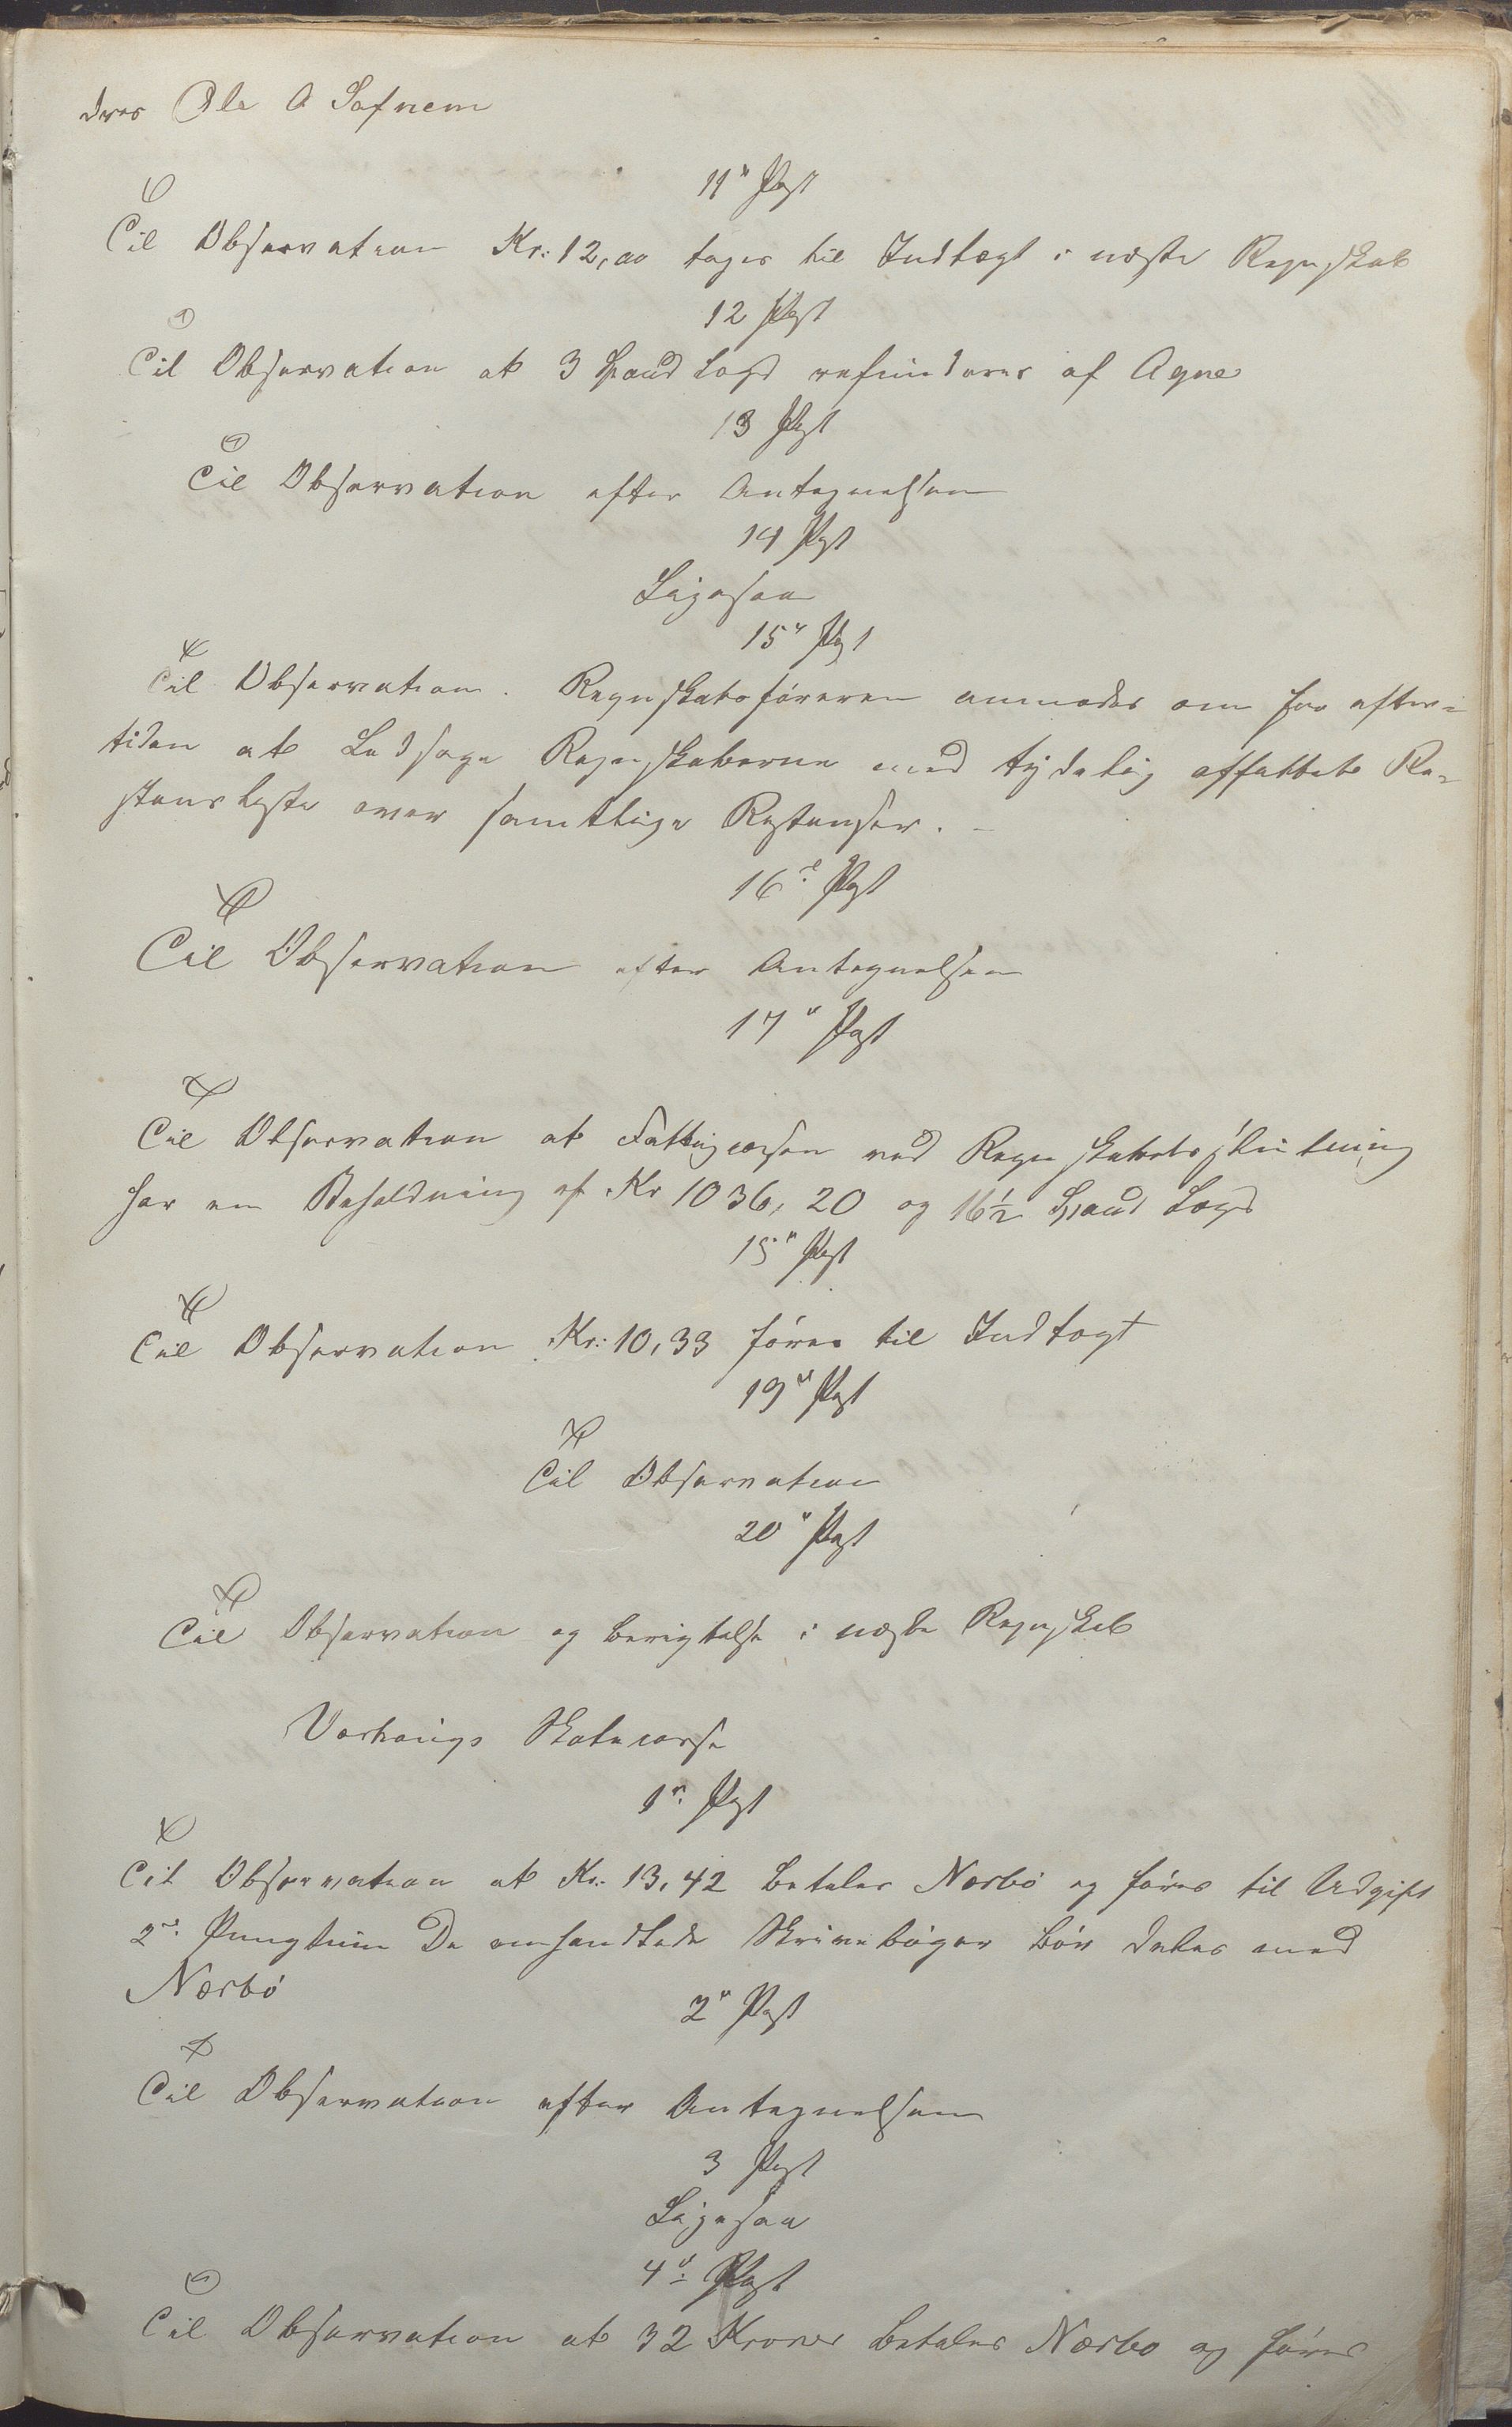 dres Ole A
11te Post
Til Observation Kr: 12,00 tages til Indtægt i næste Regnskab
12 Post
Til Observation at 3 Spand Lagd refunderes af Ogne
13 Post
Til Observation efter Antegnelsen
14 Post
Ligesaa
15de Post
Til Observation. Regnskabsføreren anmodes om for efter-
tiden at Ledsage Regnskaberne med tydelig affattet Re-
stansliste over samtlige Restanser. -
16de Post
Til Observation efter Antegnelsen
17de Post
Til Observation at Fattigcassen ved Regnskabets slutning
har en Beholdning af Kr 1036,20 og 16½ Spand Lagd
18de Post
Til Observation Kr: 10,33 føres til Indtægt
19de Post
Til Observation
20de Post
Til Observation og berigtelse i næste Regnskab
Varhaugs Skolecasse
1ste Post
Til Observation at Kr: 13,42 betales Nærbø og føres til Udgift
2det Pungtum De omhandlede Skrivebøger bør deles med
Nærbø
2den Post
Til Observation efter Antegnelsen
3 Post
Ligesaa
4de Post
Til Observation at 32 Kroner betales Nærbø og føres